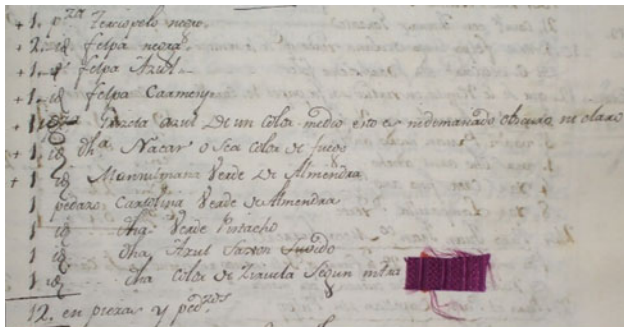 + 1. pza Terciopelo negro.
+ 2. id felpa negra.
+ 1. id felpa Azul.
+ 1. id felpa Carmen.
+ 1. Azul De un Color medio esto es ni demaciado obscuro ni claro
+ 1. id dha Nacar o sea Color de fuego
+ 1. id Verde De Almendra
1 pedazo Carolina Verde de Almendra
1 id dha Verde Pistacho
1 id dha Azul Saxon
1 id dha Color de Ziruela Segun mtra
12. en piezas y pedzos